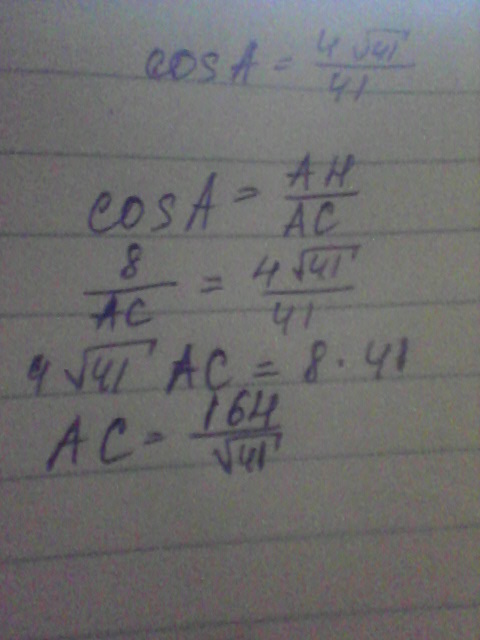 cosA = 4√41/41
cosA = AH/AC
8/AC = 4√41/41
4√41 AC = 8·41
AC = 164/√41